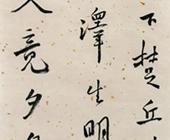 下楚丘
澤生明
竟夕